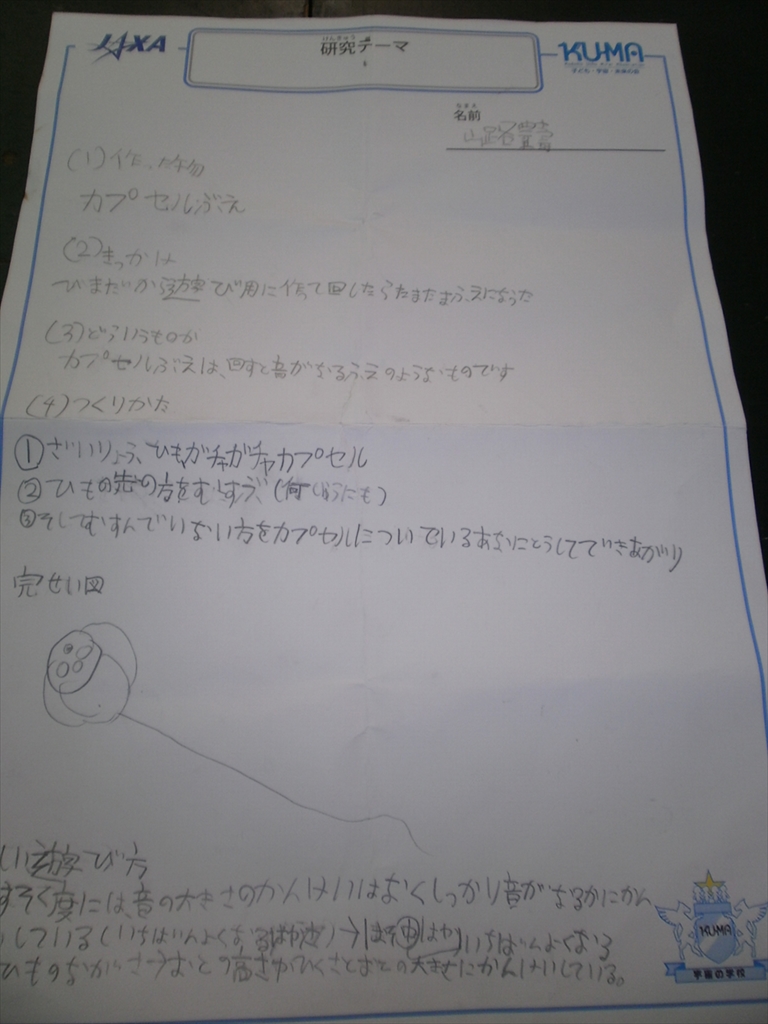 JAXA
けんきゅう
研究テーマ
KU-MA
子ども・宇宙・未来の会
なまえ
名前
(1)作った物
カプセルぶえ
(2)きっかけ
ひまだから遊び用に作って回したらたまたまふえになった
(3)どういうものか
カプセルぶえは、回すと音がなるふえのようなものです
(4)つくりかた
①ざいりょう、ひも、ガチャガチャカプセル
②ひもの先の方をむすぶ、(何じゅうにも)
③そしてむすんでいない方をカプセルについているあなにとうしてできあがり
完せい図
しい遊び方
すそく度には、音の大きさのかんけいはなくしっかり音がなるかにかん
している(いちばんよくなる)→ いちばんよくなる
ひものながさ→おとの高さやひくさとおとの大きさにかんけいしている。
KUMA
宇宙の学校